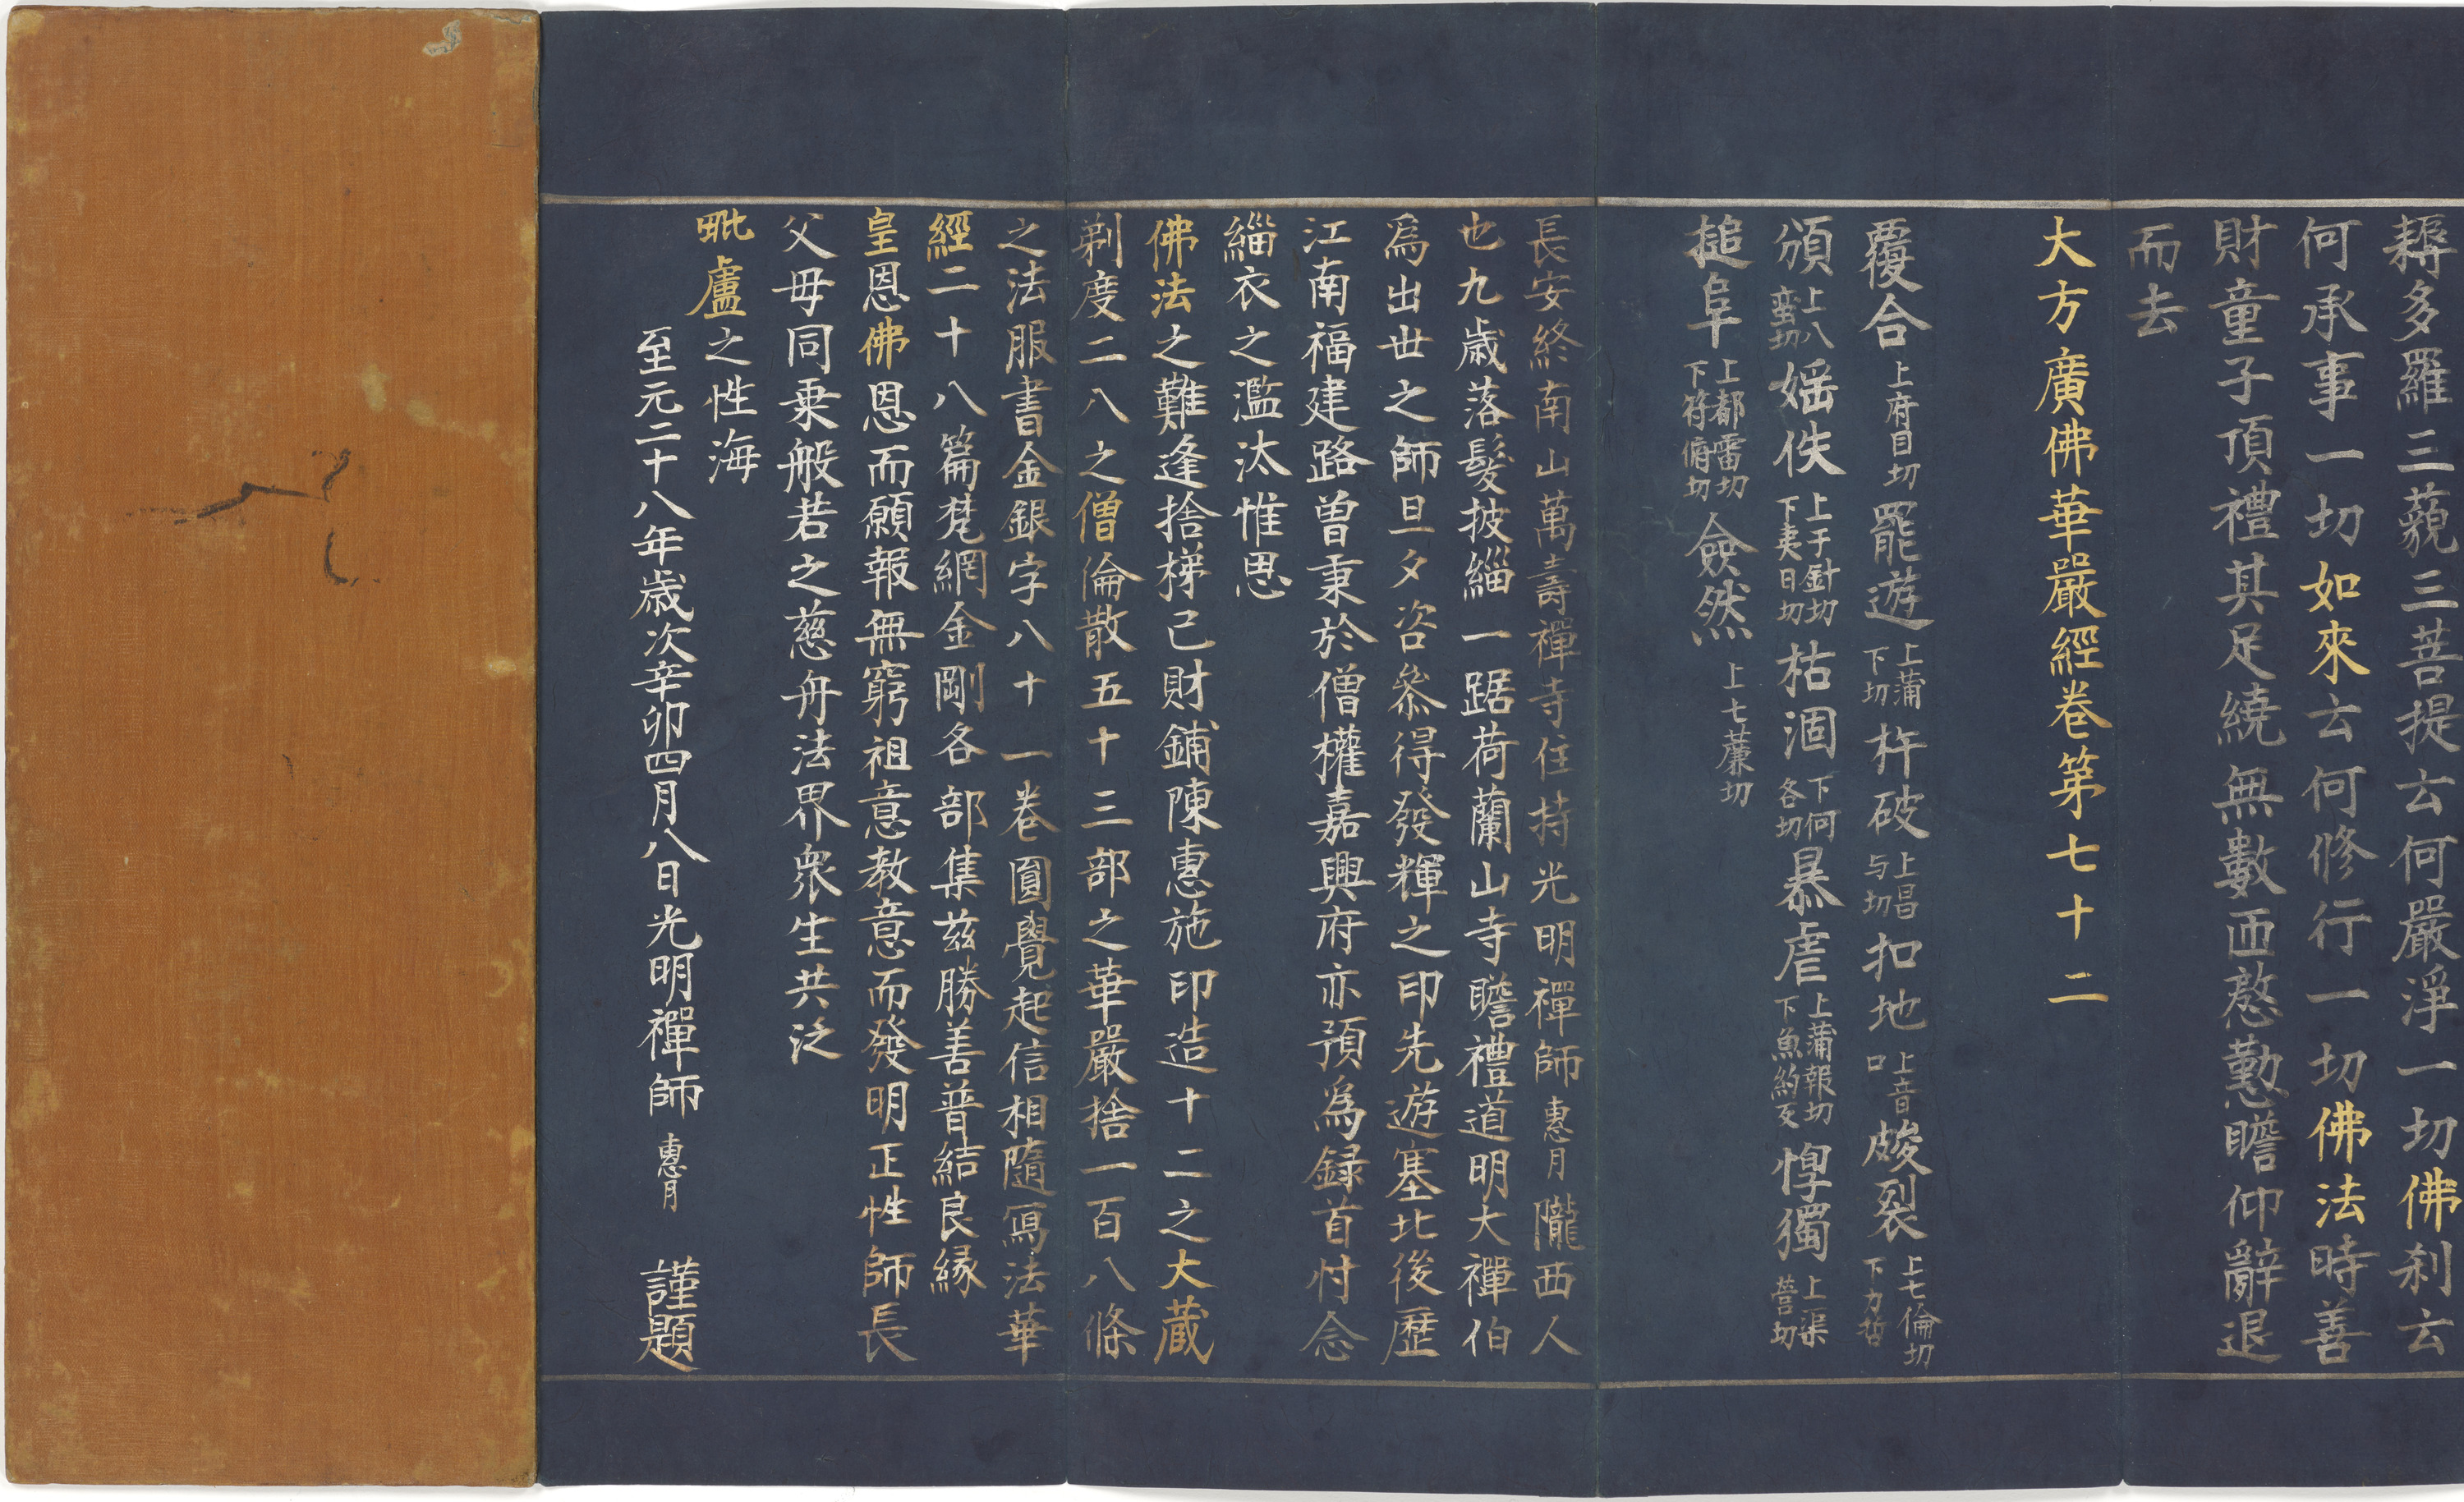 耨多羅三藐三菩提云何嚴淨一切佛刹云
何承事一切如來云何修行一切佛法時善
財童子頂禮其足繞無數匝慇懃瞻仰辭退
而去
大方廣佛華嚴經卷第七十二
覆合上府目切罷遊上蒲下切杵破上昌与切扣地上音口皴裂上七倫切下力哲
頒上八蠻切婬佚上于針切下夷日切枯涸下何各切暴虐上蒲報切下魚約反惸獨上渠營切
搥阜上都雷切下符脩切僉然上七廉切
長安終南山萬壽禪寺住持光明禪師惠月隴西人
也九歲落髮披緇一踞荷蘭山寺瞻禮道明大禪伯
爲出世之師旦夕咨叅得發輝之印先遊塞北後歷
江南福建路曾秉於僧權嘉興府亦預爲録首忖念
緇衣之濫汰惟思
佛法之難逢捨梯己財鋪陳惠施印造十二之大藏
剃度二八之僧倫散五十三部之華嚴捨一百八條
之法服書金銀字八十一卷圓覺起信相隨寫法華
經二十八篇梵網金剛各部集兹勝善普結良緣
皇恩佛恩而願報無窮祖意教意而發明正性師長
父母同乗般若之慈舟法界衆生共泛
毗盧之性海
至元二十八年歲次辛卯四月八日光明禪師惠月謹題